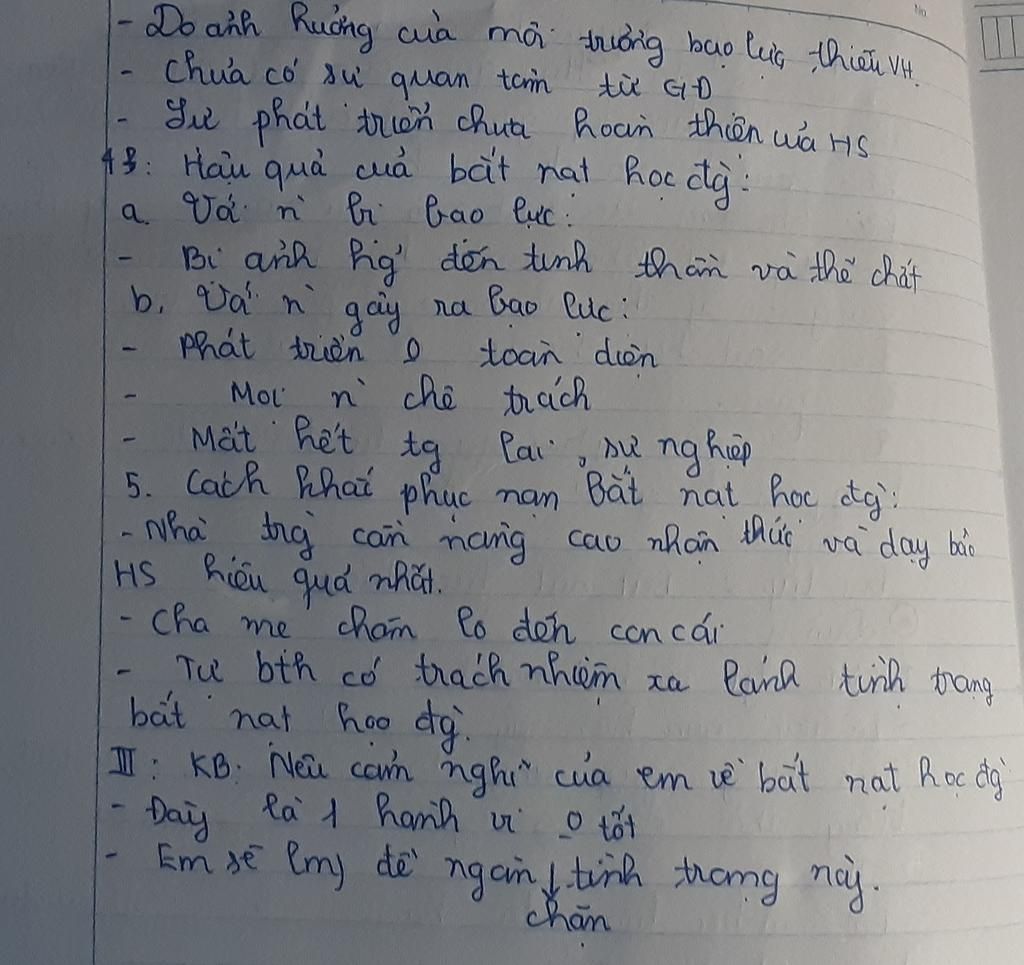 - Do ảnh hưởng của môi trường bạo lực, thiếu VH.
- Chưa có sự quan tâm từ GĐ
- Sự phát triển chưa hoàn thiện của HS
Hậu quả của bắt nạt học đg`:
a. Vá. n` bị bạo lực:
- Bị ảnh hg' đến tinh thần và thể chất
b. Vá. n` gây ra bạo lực:
- Phát triển 0 toàn diện
- Mọi n` chê trách
- Mất hết tg lai, sự nghiệp
5. Cách khắc phục nạn Bắt nạt học đg`:
- Nhà trg` cần nâng cao nhận thức và dạy bảo
HS hiệu quả nhất.
- Cha mẹ chăm lo đến con cái
- Tự bth có trách nhiệm xa lánh tình trạng
bắt nạt học đg`.
III: KB: Nêu cảm nghĩ của em về bắt nạt học đg`
- Đây là 1 hành vi 0 tốt
- Em sẽ để ngăn ↓ tình trạng này.
chặn